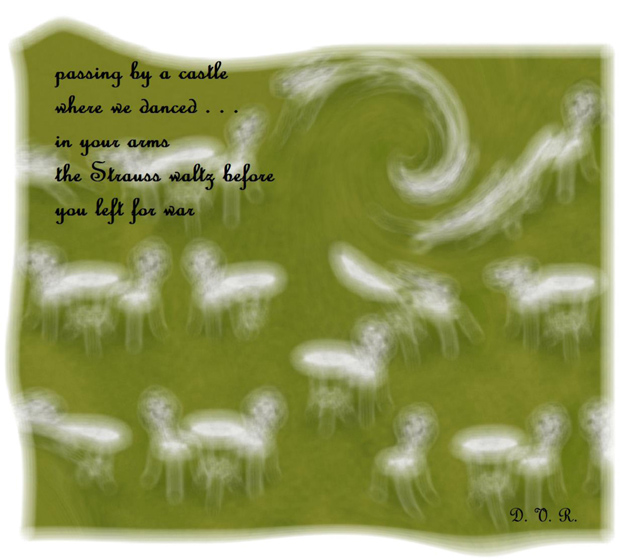 passing by a castle
where we danced . . .
in your arms
the Strauss waltz before
you left for war
D. V. R.